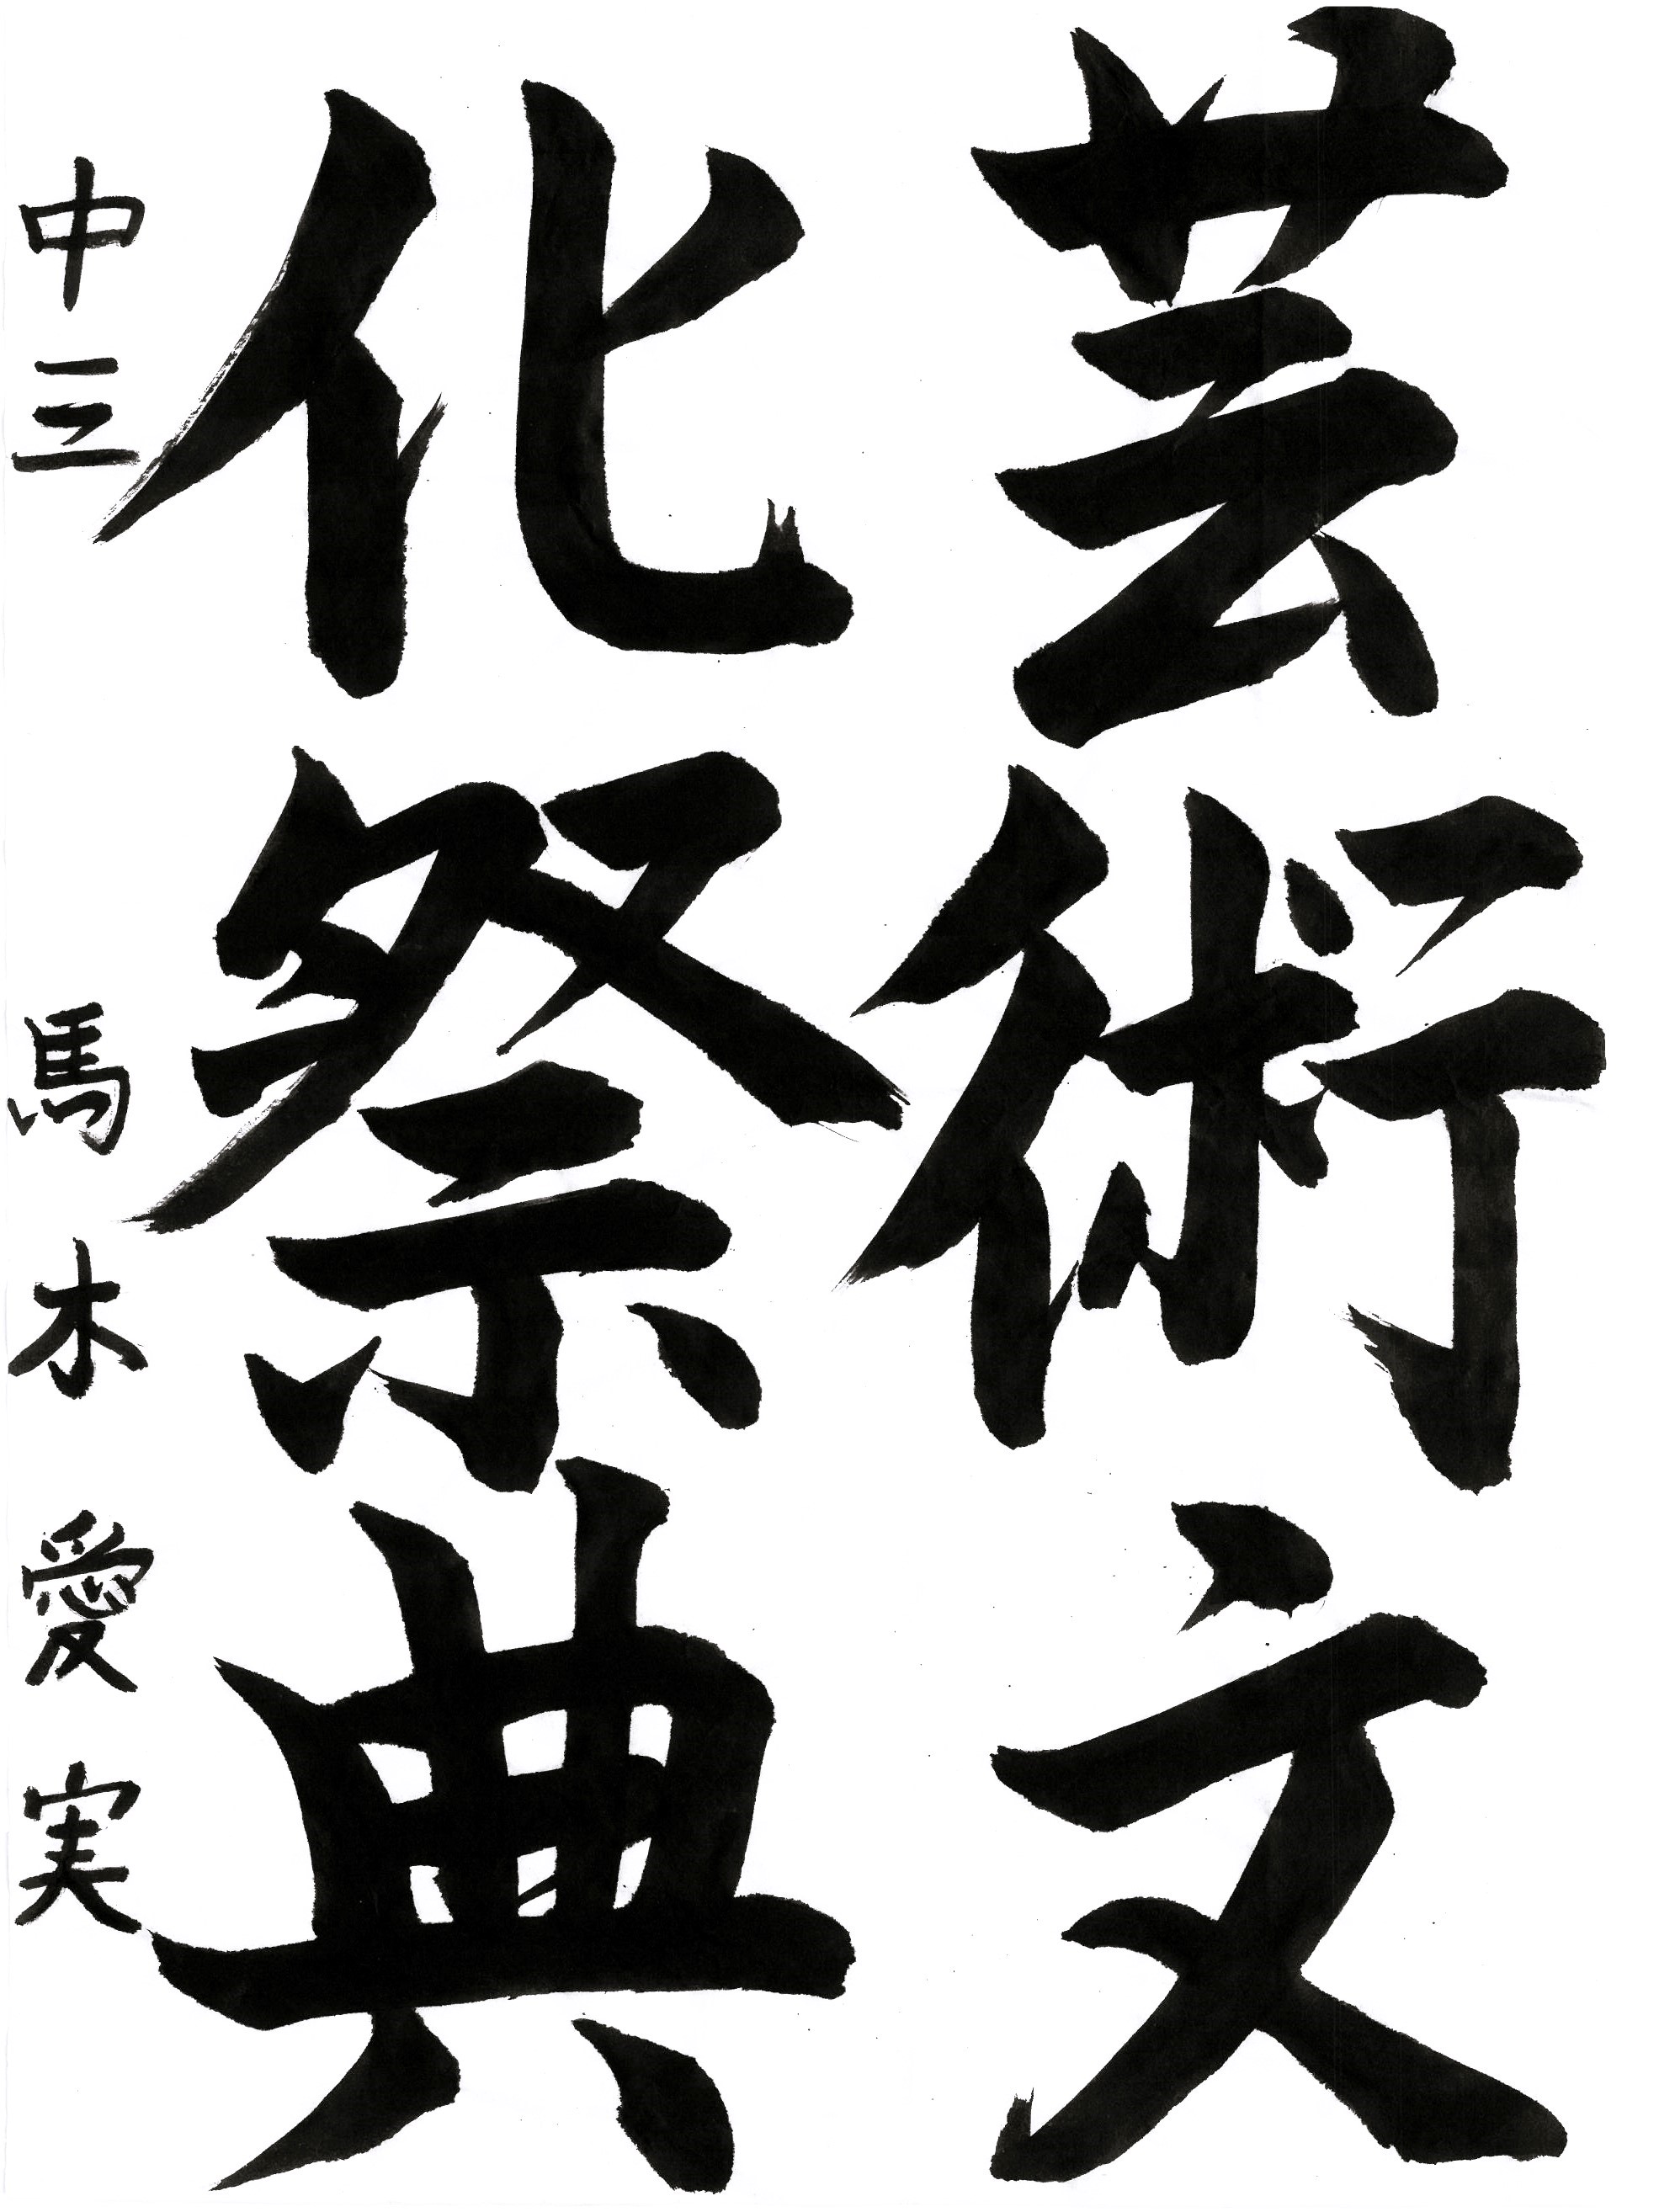 芸術文
化祭典
中三 馬木愛実